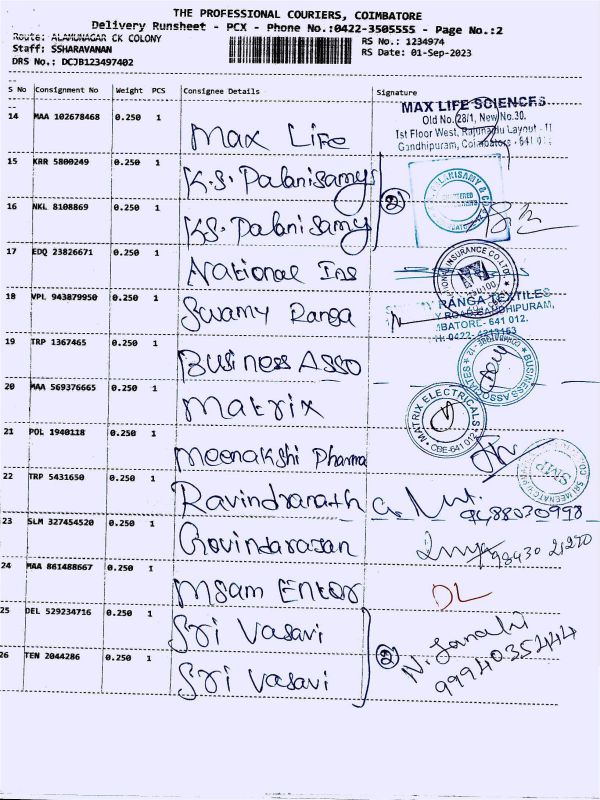 THE PROFESSIONAL COURIERS, COIMBATORE
Delivery Runsheet - PCX - Phone No.:0422-3505555 - Page No.:2
Route: ALAMUNAGAR CK COLONY RS No.: 1234974
Staff: SSHARAVANAN RS Date: 01-Sep-2023
DRS No.: DCJB123497402
S No Consignment No Weight PCS Consignee Details Signature
MAX LIFE SCIENCES
Old No.28/1, New No.30.
1st Floor West, Rajunaidu Layout - II
Gandhipuram, Coimbatore - 641 012
14 MAA 102678468 0.250 1 Max Life
15 KRR 5800249 0.250 1 K.S. Palanisamy
16 NKL 8108869 0.250 1 KS. Palanisamy
2
17 EDQ 23826671 0.250 1 National Ins
INSURANCE CO LTD
18 VPL 943879950 0.250 1 Swamy Ranga
RANGA TEXTILES
Y ROAD GANDHIPURAM,
MBATORE- 641 012.
19 TRP 1367465 0.250 1 Business Asso
BUSINESS ASSOCIATES
20 MAA 569376665 0.250 1 Matrix
MATRIX ELECTRICALS
CBE-641 012
21 POL 1940118 0.250 1 Meenakshi Pharma
SMP
22 TRP 5431650 0.250 1 Ravindranath
9488030998
23 SLM 327454520 0.250 1 Govindarasan
24 MAA 861488667 0.250 1 Msam Enter
DL
25 DEL 529234716 0.250 1 Sri Vasavi
26 TEN 2044286 0.250 1 Sri Vasavi
2
N. Janaki